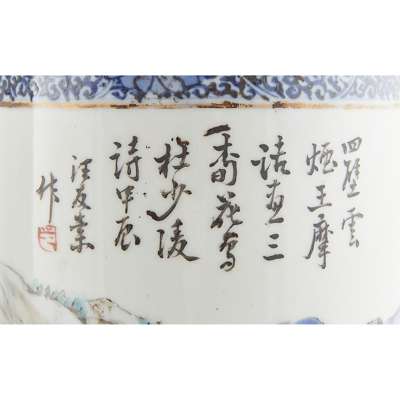 四壁雲
煙王摩
詰畫三
香花鳥
杜少陵
詩甲辰
汪友棠
作